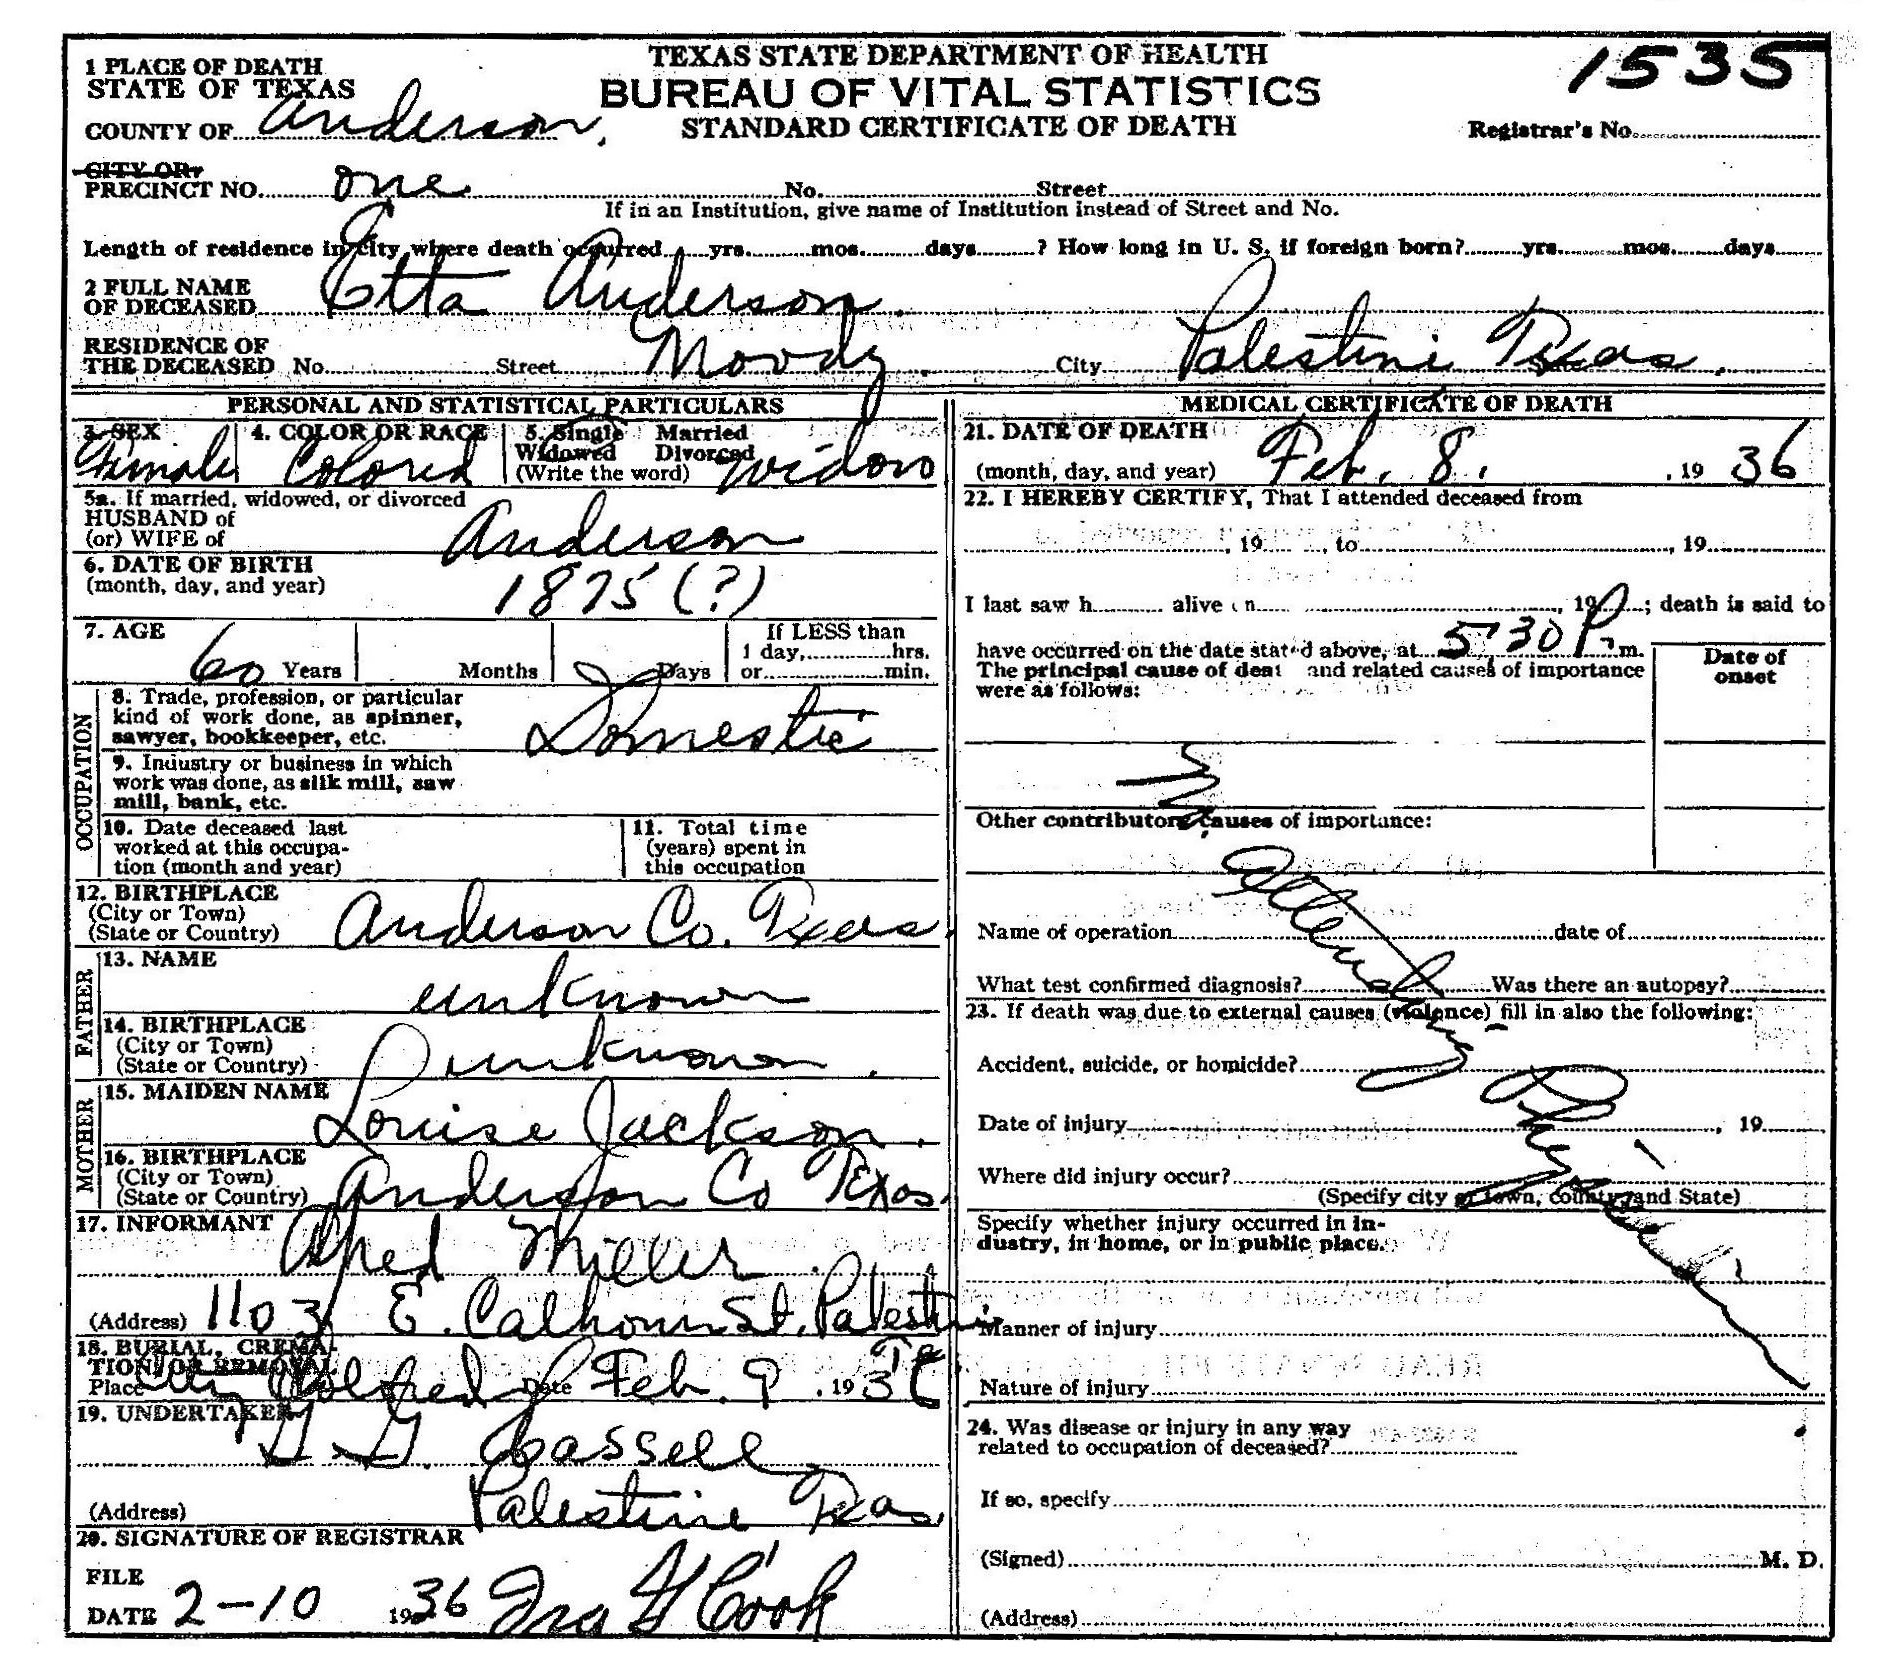 TEXAS STATE DEPARTMENT OF HEALTH
BUREAU OF VITAL STATISTICS
STANDARD CERTIFICATE OF DEATH
1535
Registrar's No.
1 PLACE OF DEATH
STATE OF TEXAS
COUNTY OF Anderson,
CITY OR
PRECINCT NO. one No. Street
If in an Institution, give name of Institution instead of Street and No.
Length of residence in city where death occurred yrs. mos. days ? How long in U. S. if foreign born? yrs. mos. days
2 FULL NAME
OF DECEASED Etta Anderson.
RESIDENCE OF
THE DECEASED No. Street Moody. City Palestine Texas.
PERSONAL AND STATISTICAL PARTICULARS
3. SEX
Female
4. COLOR OR RACE
Colored
5. Single Married
Widowed Divorced
(Write the word) Widow
5a. If married, widowed, or divorced
HUSBAND of
(or) WIFE of Anderson
6. DATE OF BIRTH
(month, day, and year) 1875 (?)
7. AGE
60 Years Months Days
If LESS than
1 day, hrs.
or min.
OCCUPATION
8. Trade, profession, or particular
kind of work done, as spinner,
sawyer, bookkeeper, etc. Domestic
9. Industry or business in which
work was done, as silk mill, saw
mill, bank, etc.
10. Date deceased last
worked at this occupa-
tion (month and year)
11. Total time
(years) spent in
this occupation
12. BIRTHPLACE
(City or Town)
(State or Country) Anderson Co. Texas.
FATHER
13. NAME
unknown
14. BIRTHPLACE
(City or Town)
(State or Country) unknown.
MOTHER
15. MAIDEN NAME
Louise Jackson.
16. BIRTHPLACE
(City or Town)
(State or Country) Anderson Co Texas.
17. INFORMANT
Alfred Miller.
(Address) 1103 E. Calhoun St. Palestine
18. BURIAL, CREMA-
TION OR REMOVAL
Place City Colored Date Feb. 9, 1936
19. UNDERTAKER
Cassell
(Address) Palestine Texas.
20. SIGNATURE OF REGISTRAR
FILE
DATE 2-10 1936 Ira Cook
MEDICAL CERTIFICATE OF DEATH
21. DATE OF DEATH
(month, day, and year) Feb. 8. , 19 36
22. I HEREBY CERTIFY, That I attended deceased from
, 19 , to , 19
I last saw h alive on , 19 ; death is said to
have occurred on the date stated above, at 5:30 P. m.
The principal cause of death and related causes of importance
were as follows:
Date of
onset
Other contributory causes of importance:
No Attending Physician
Name of operation date of
What test confirmed diagnosis? Was there an autopsy?
23. If death was due to external causes (violence) fill in also the following:
Accident, suicide, or homicide?
Date of injury , 19
Where did injury occur?
(Specify city or town, county, and State)
Specify whether injury occurred in in-
dustry, in home, or in public place.
Manner of injury
Nature of injury
24. Was disease or injury in any way
related to occupation of deceased?
If so, specify
(Signed) M. D.
(Address)